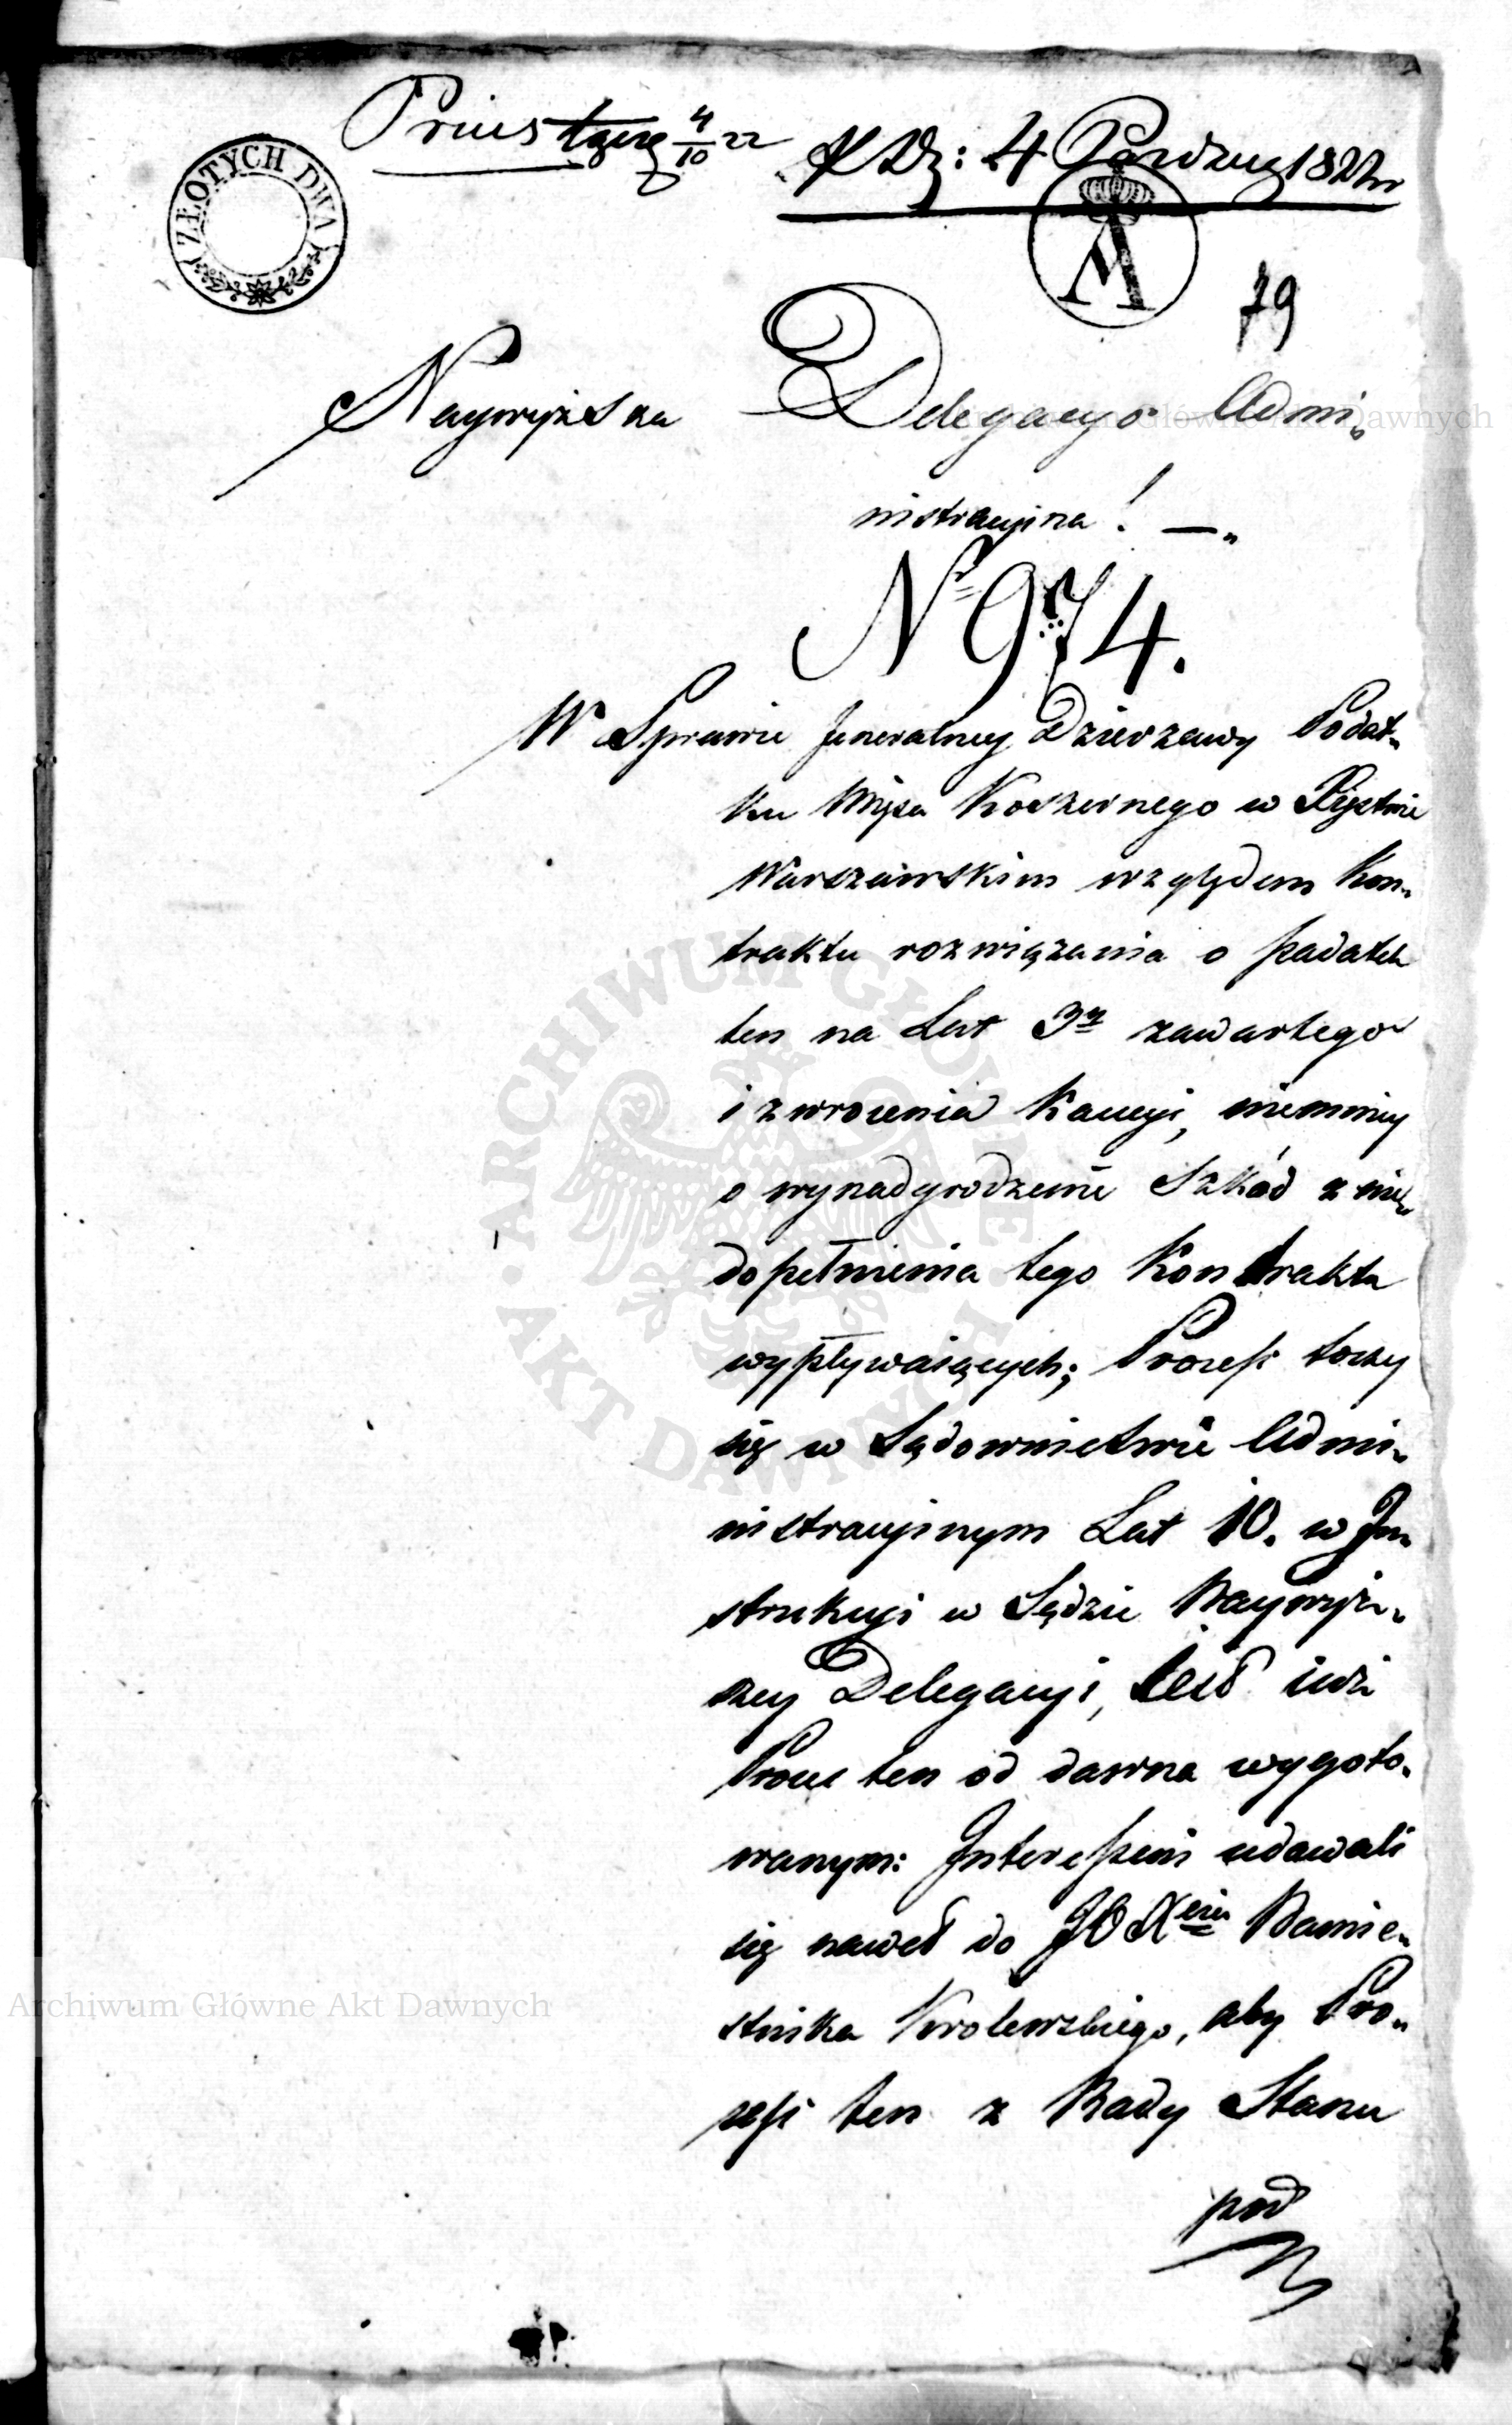 Prius tgreg 4/10 22
pr Dz: 4 Pazdzie 1822 r
ZŁOTYCH DWA
M
79
Naywyższa Delegacya Admi„
nistracyina! —„
Nr 974.
W Sprawie Jeneralney Dzierzawy Podat„
ku Mięsa Koszernego w Xięstwie
Warszawskim względem Kon„
traktu rozwiązania o podatek
ten na Lat 3y zawartego
i zwrocenia Kaucyi, niemniey
o wynadgrodzenie Szkód z nie„
dopełnienia tego Kontraktu
wypływaiących; Process toczy
się w Sądownictwie Admi„
nistracyinym Lat 10. w In„
strukcyi w Sądzie Naywyż„
szey Delegacyi, iest iuż
Proces ten od dawna wygoto„
wanym: Interessenci udawali
się nawet do JO Xcia Namie„
stnika Krolewskiego, aby Pro„
cess ten z Rady Stanu
pod
ARCHIWUM GŁÓWNE AKT DAWNYCH
Archiwum Główne Akt Dawnych
Archiwum Główne Akt Dawnych